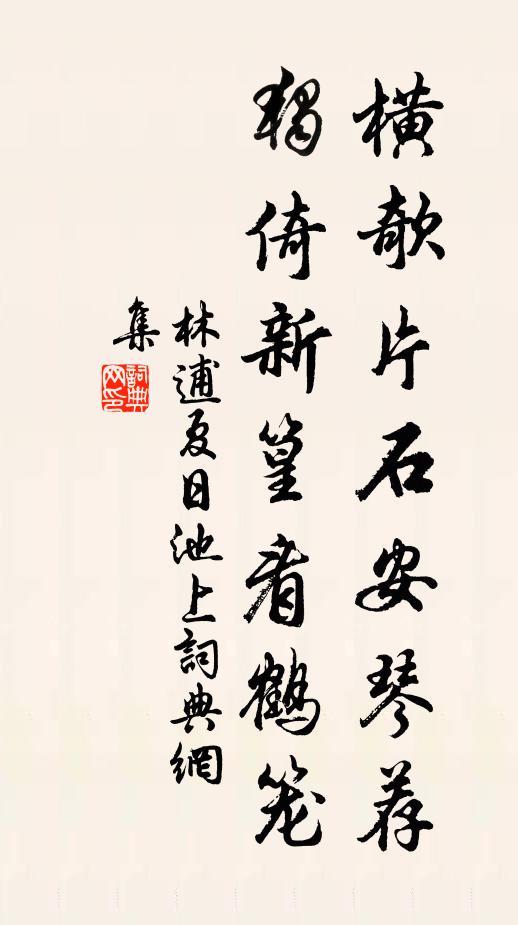 横欹片石安琴荐
独倚新篁看鹤笼
林逋夏日池上詞典網
集
詞典网印